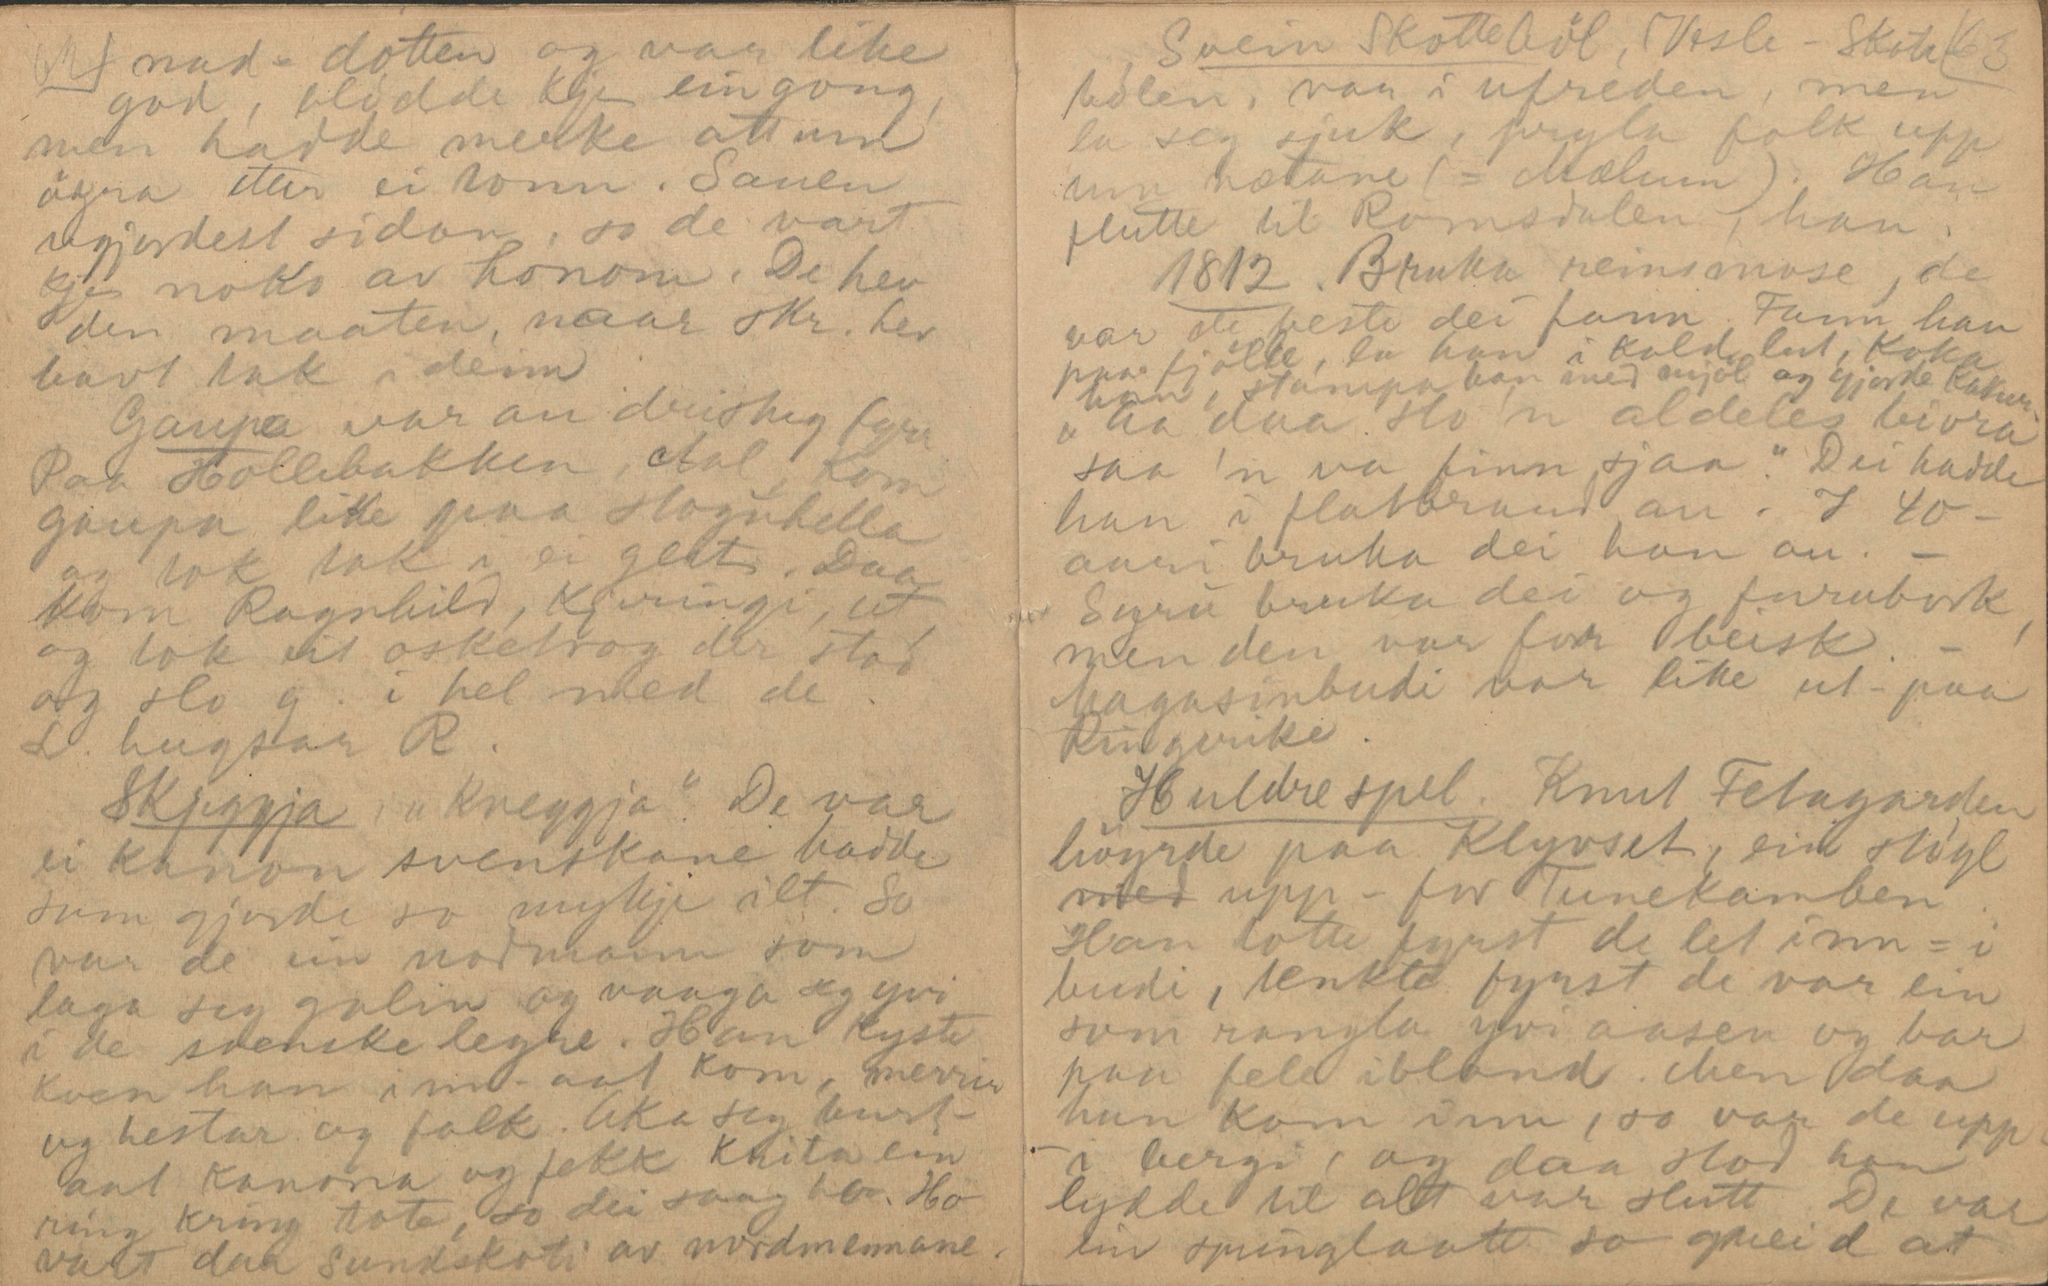 nad-dotten og var like
god, blödde kje eingong,
men hadde merke attum
ögra etter ei tonn. Sauen
ugjordest sidan, so de vart
kje noko av honom. De hev
den maaten, naar skr. hev
havt tak i deim
Gaupa var au dristug fyrr
Paa Hollibakken, Aal, kom
gaupa like paa stoguhella
og tok tak i ei geit. Daa
kom Ragnhild, kjeringi, ut
og tok eit osketrog der stod
og slo g. i hel med de.
L. hugsar R.
Skjeggja, "Kneggja". De var
ei kanon svenskane hadde
som gjorde so mykje ilt. So
var de ein nordmann som
laga seg galin og vaaga seg yvi
i de svenske legre. Han kyste
kven han inn-aat kom, merrar
og hestar og folk. Aka seg burt-
aat kanona og fekk krita ein
ring kring tota, so dei saag ho. Ho
vart daa sundskoti av nordmennane.
63
Svein Skottebøl, Vesle-Skotte
bölen, var i ufreden, men
la seg sjuk, prygla folk upp
um nætane (= Mælum). Han
flutte til Romsdalen, han.
1812. Bruka reinsmose, de
var de beste dei fann. Fann han
paa fjölle, la han i kald lut, koka
han, stampa han med mjöl og gjorde kakur.
"Aa daa slo 'n aldeles bivra
saa 'n va finn, sjaa". Dei hadde
han i flatbraud au. I 40-
aari bruka dei han au. –
Syru bruka dei og furubork,
men den var for beisk. –
Magasinbudi var like ut-paa
Ringerike.
Huldrespel. Knut Fetagarden
höyrde paa Klyvset, ein stöyl
upp-for Tunekamben.
Han totte fyrst de let inn-i
budi, tenkte fyrst de var ein
som rangla yvi aasen og bar
paa fele ibland. Men daa
han kom inn, so var de upp-
i bergi, og daa stod han
lydde til alt var slutt. De var
ein springlaatt so greid at